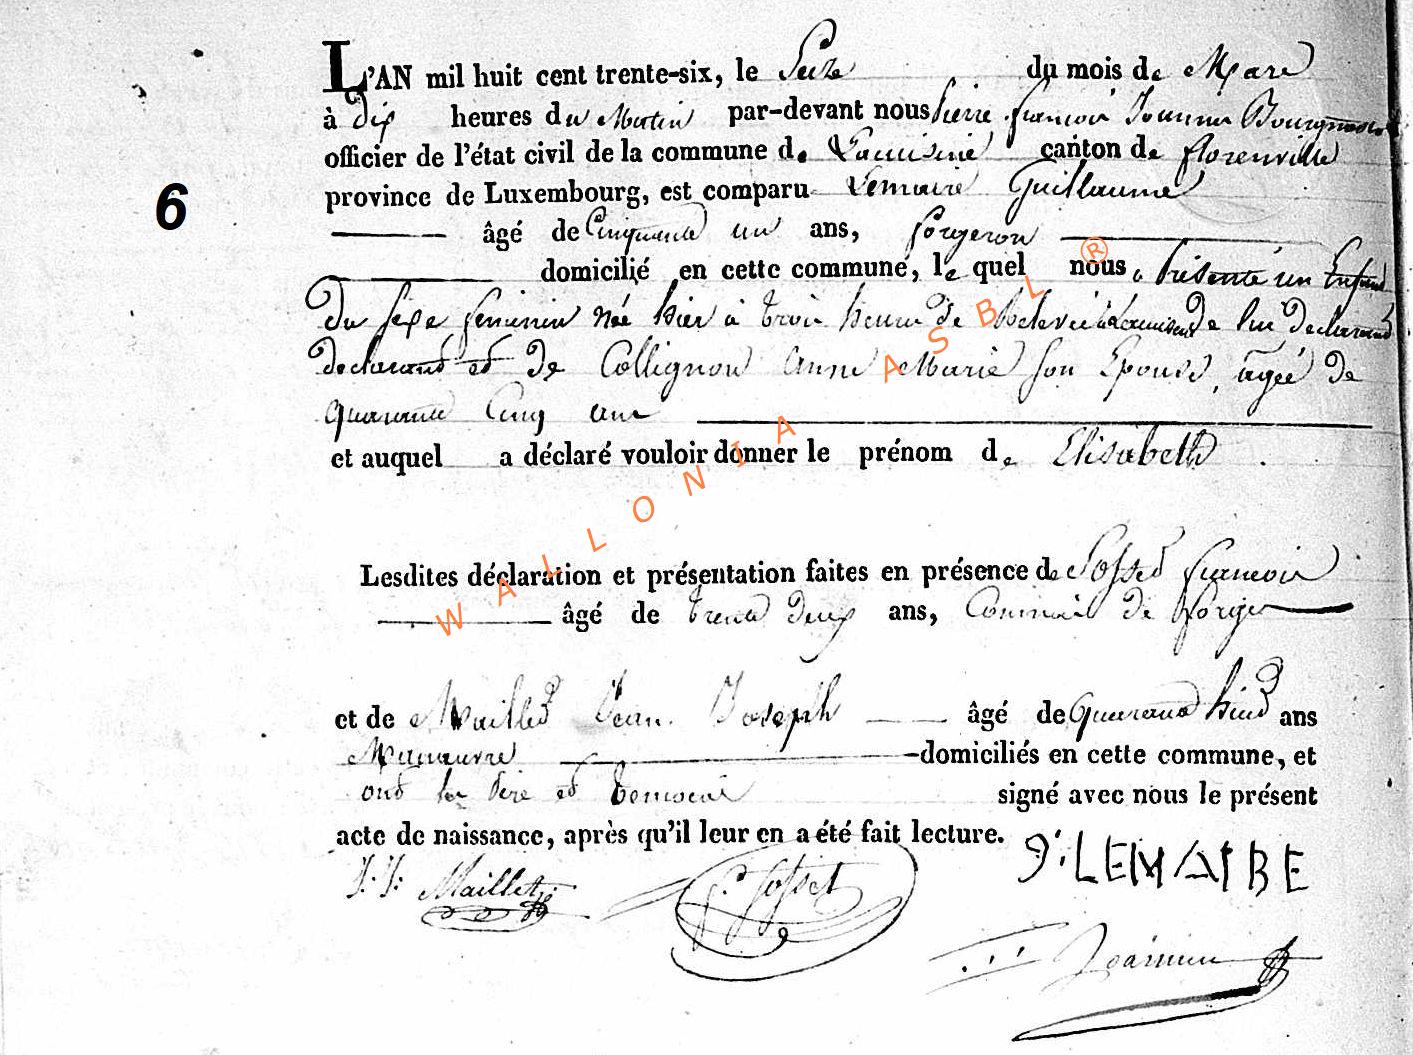 L'AN mil huit cent trente-six, le Seize du mois de Mars
à dix heures du Matin par-devant nous Pierre françois Joannin Bourgmestre
officier de l'état civil de la commune de Lacuisine canton de florenville
province de Luxembourg, est comparu Lemaire Guillaume
âgé de Cinquante un ans, forgeron
domicilié en cette commune, le quel nous a Présenté un Enfant
6
du sexe feminin née hier à trois heures de Relevée à Lacuisine de lui declarant
declarant et de Collignon Anne Marie son Epouse, agée de
quarante Cinq ans
et auquel a déclaré vouloir donner le prénom de Elisabeth.
WALLONIA ASBL ®
Lesdites déclaration et présentation faites en présence de Gosset francois
âgé de trente deux ans, Commis de forges
et de Maillet Jean Joseph âgé de quarante huit ans
Manœuvre domiciliés en cette commune, et
ont les Père et temoins signé avec nous le présent
acte de naissance, après qu'il leur en a été fait lecture.
J: J: Maillet f. Gosset G. LEMAIRE
Joannin